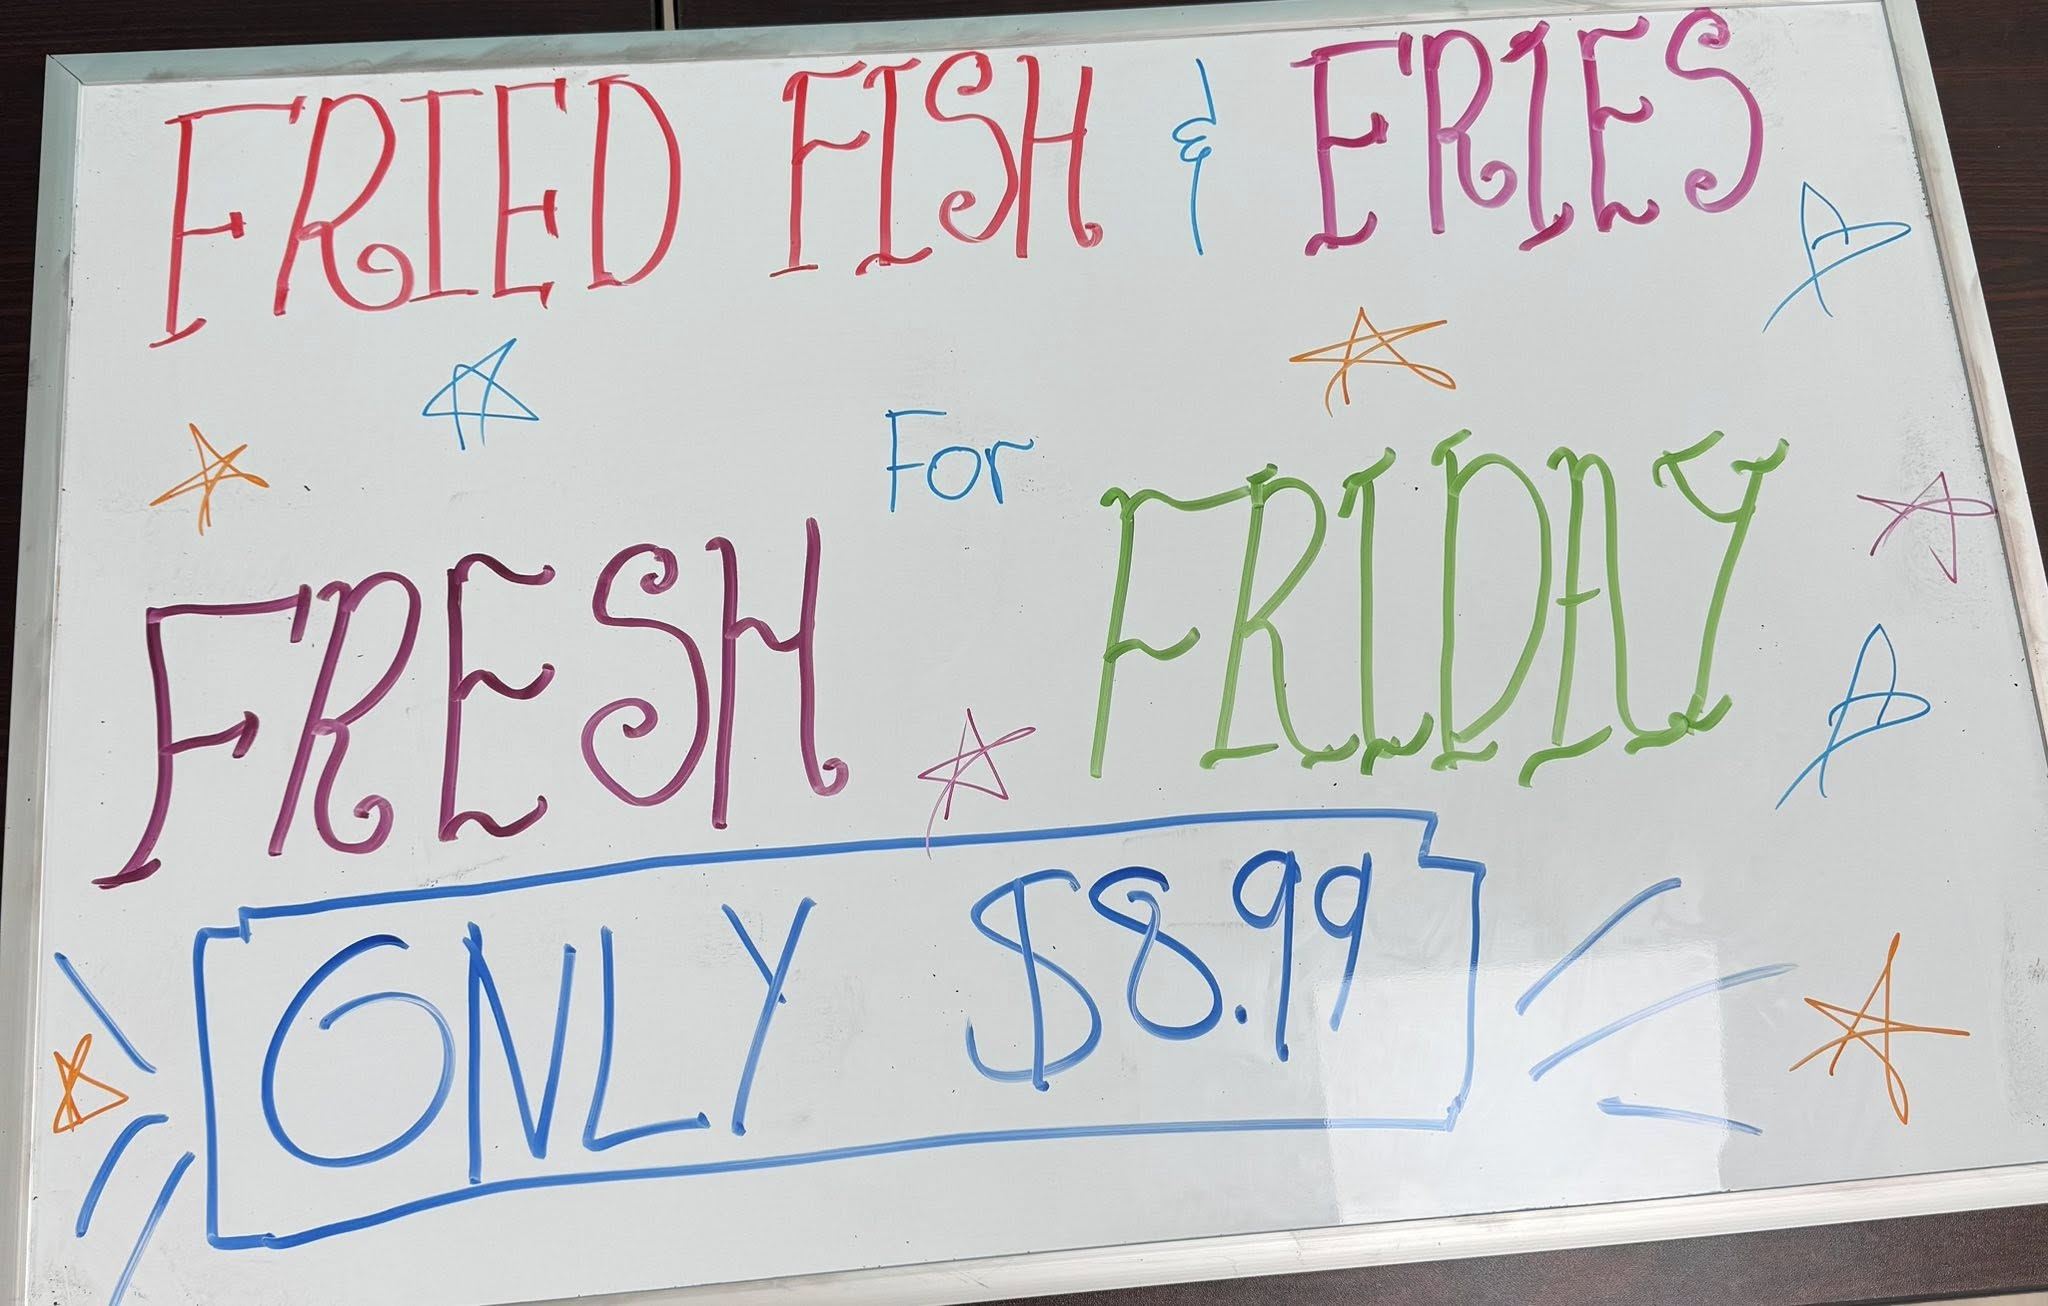 FRIED FISH & FRIES
For
FRESH FRIDAY
ONLY $8.99